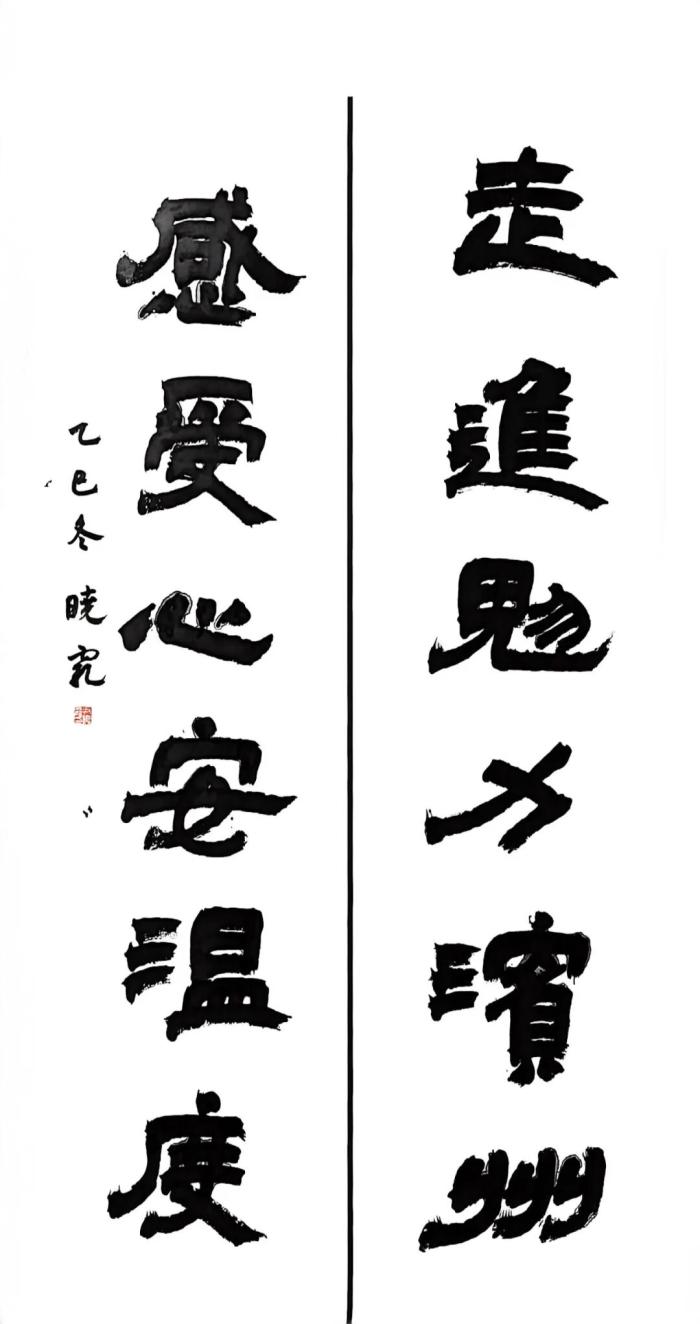 走進勉力濱州
感受心安温度
乙巳冬 曉